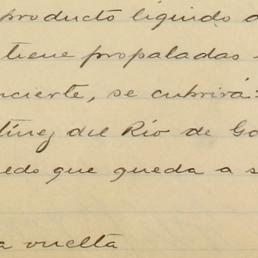 producto líquido d
tiene propaladas
ncierte, se cubrirá:
tínez del Río de Go
edo que queda a s
a vuelta